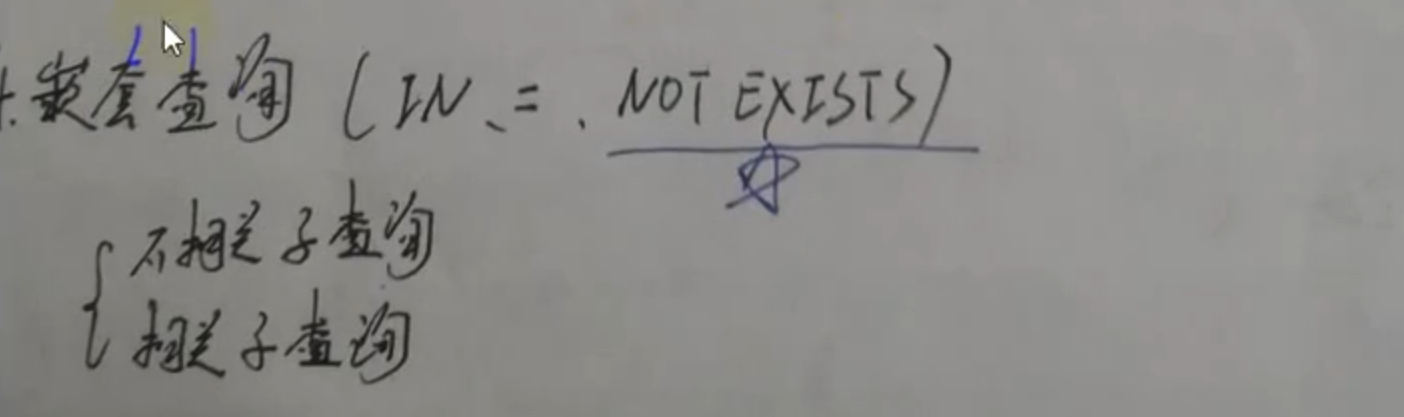 嵌套查询 (IN、=、NOT EXISTS)
不相关子查询
相关子查询